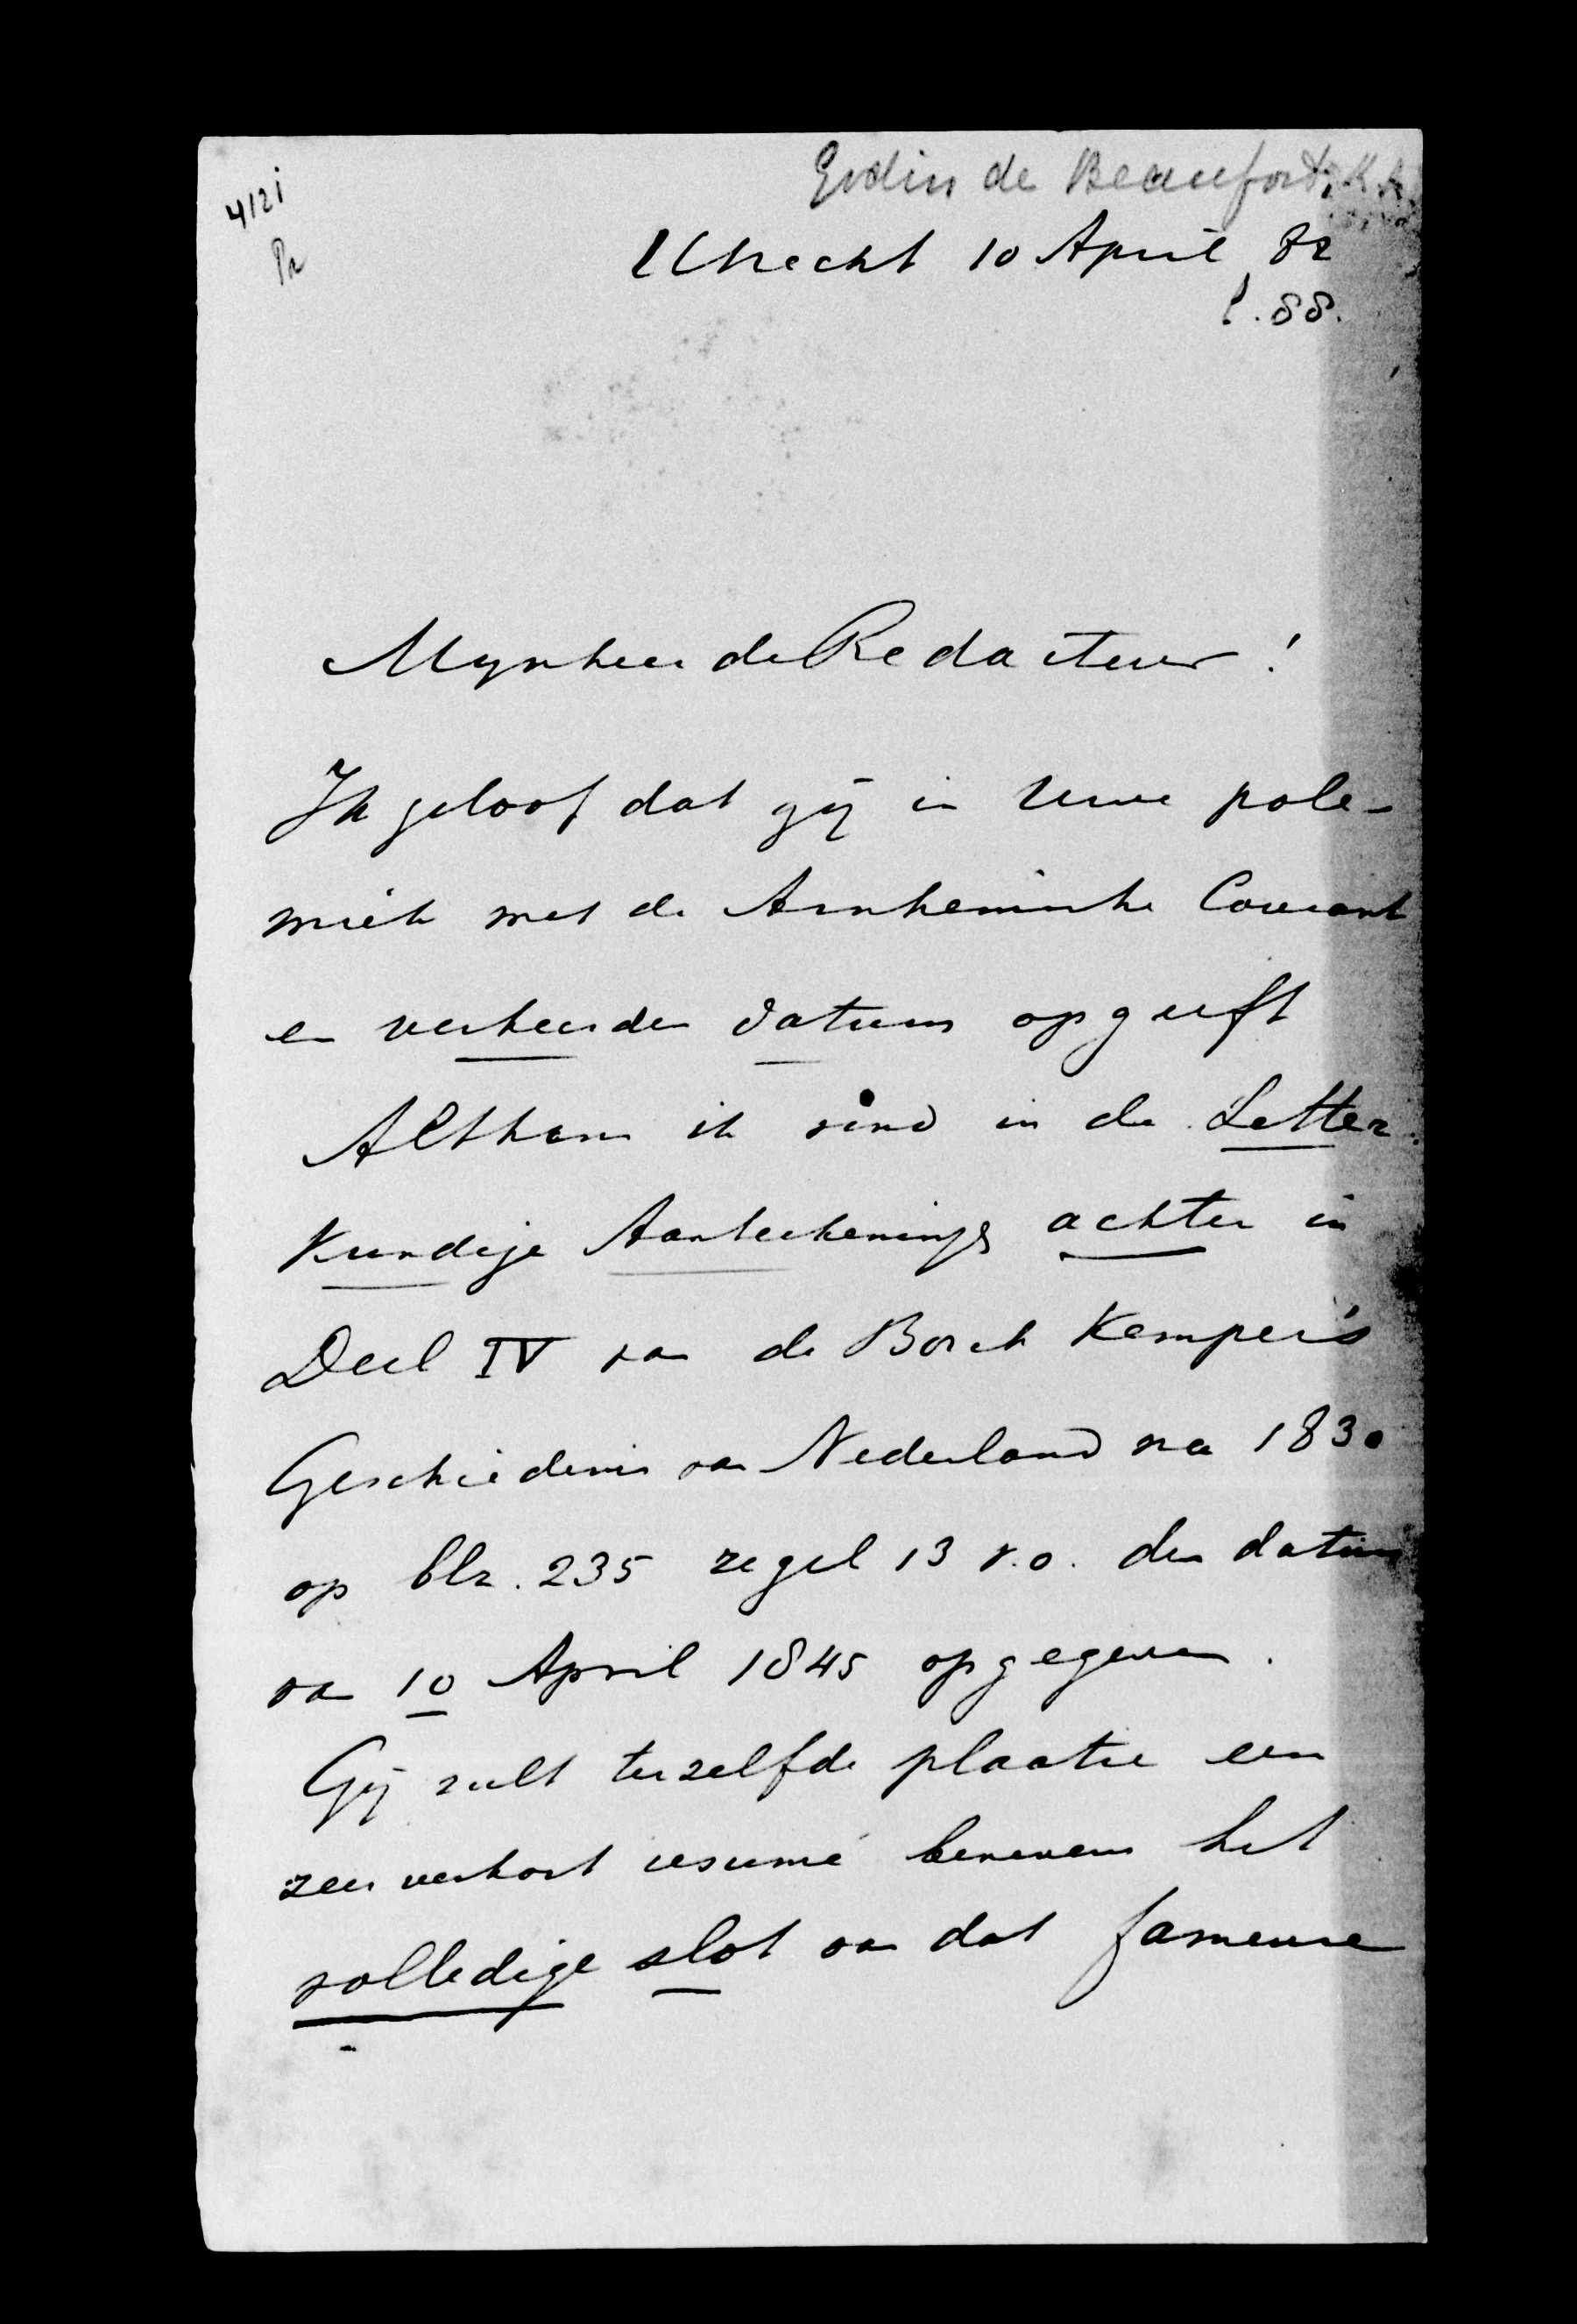 4121
Godin de Beaufort, K.A.
Pr
Utrecht 10 April 82
l. 88.
Mynheer de Redacteur!
Ik geloof dat gij in Uwe pole-
miek met de Arnhemische Courant
en verkeerden datum opgeeft
Althans ik vind in de Letter-
Kundige Aanteekeningen achter in
Deel IV van de Bosch Kemper's
Geschiedenis van Nederland na 1830
op blz. 235 regel 13 v.o. den datum
van 10 April 1845 opgegeven.
Gij zult terzelfde plaatse een
zeer verkort resumé benevens het
volledige slot van dat fameuse